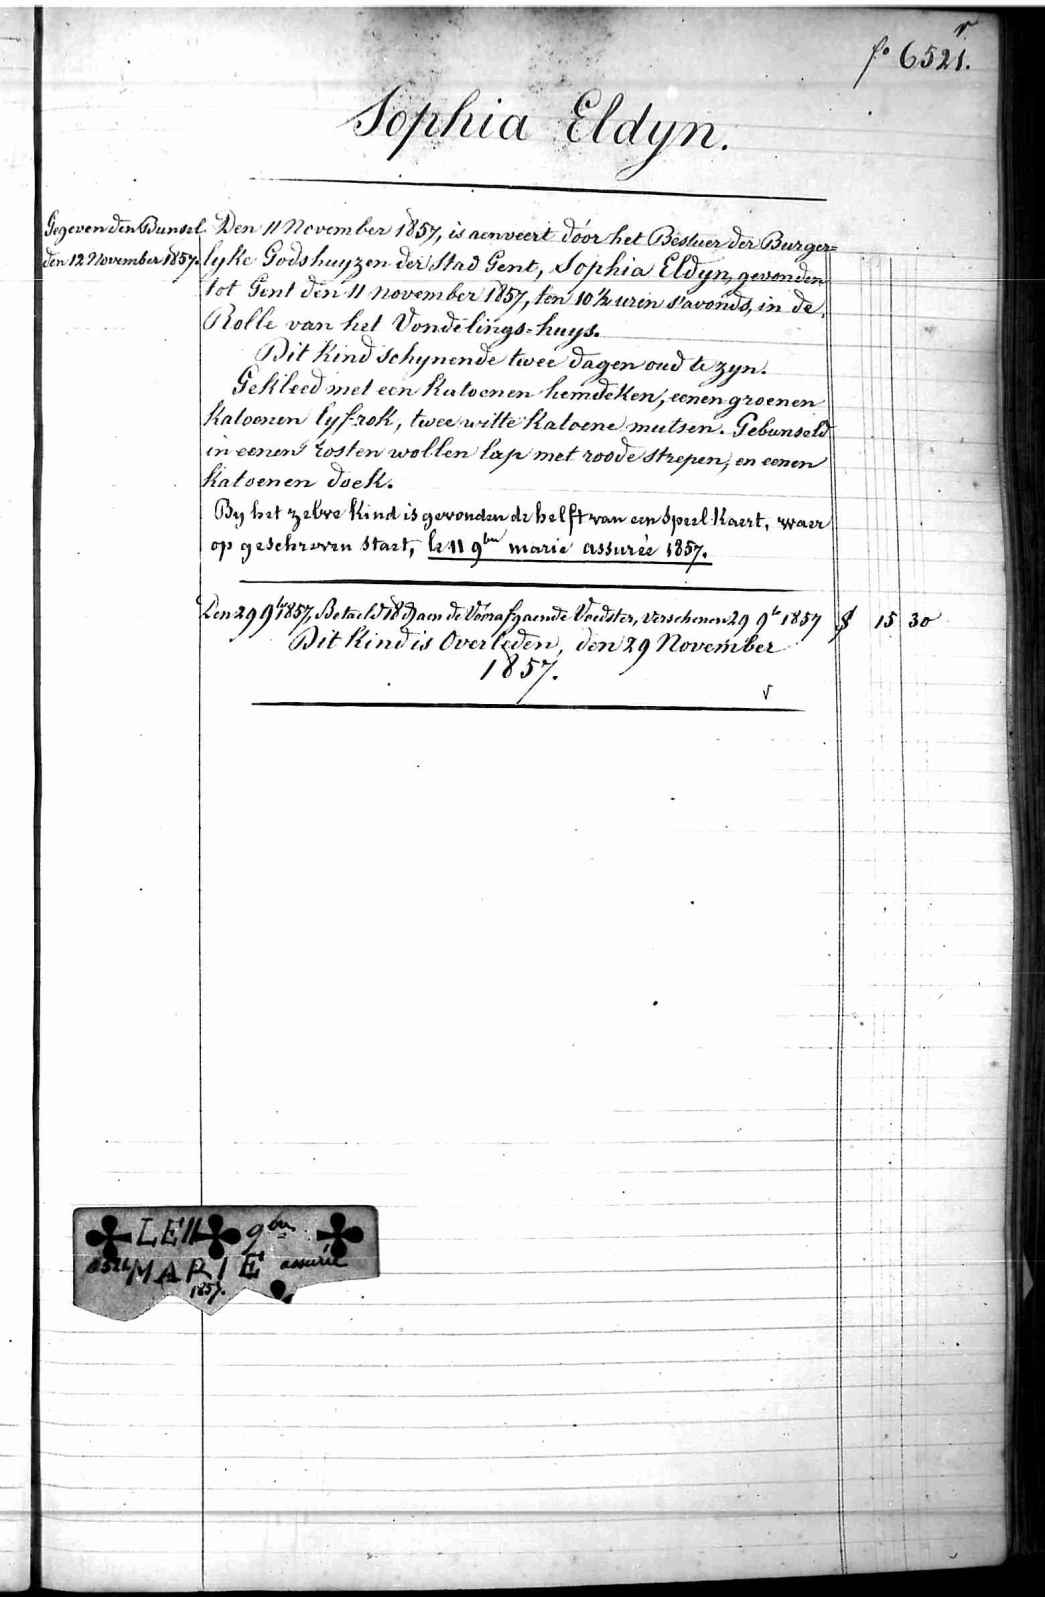 fo 6521.
Sophia Eldyn.
Gegeven den Bunsel
den 12 November 1857.
Den 11 November 1857, is aenveert door het Bestuer der Burger=
lyke Godshuyzen der Stad Gent, Sophia Eldyn, gevonden
tot Gent den 11 November 1857, ten 10 ½ uren s'avonds, in de
Rolle van het Vondelings=huys.
Dit Kind schynende twee dagen oud te zyn.
Gekleed met een Katoenen hemdeken, eenen groenen
Katoenen lyfrok, twee witte Katoene mutsen. Gebunseld
in eenen rosten wollen lap met roode strepen, en eenen
Katoenen doek.
By het zelve Kind is gevonden de helft van een Speel-Kaert, waer
op geschreven staet, le 11 9bre marie assurée 1857.
Den 29 9br 1857, Betaeld 18 D aen de Voorafgaende Voedster, verschenen 29 9br 1857 f 15 30
Dit Kind is Overleden, den 29 November
1857.
LE 11 9bre
6521 MARIE assurée
1857.